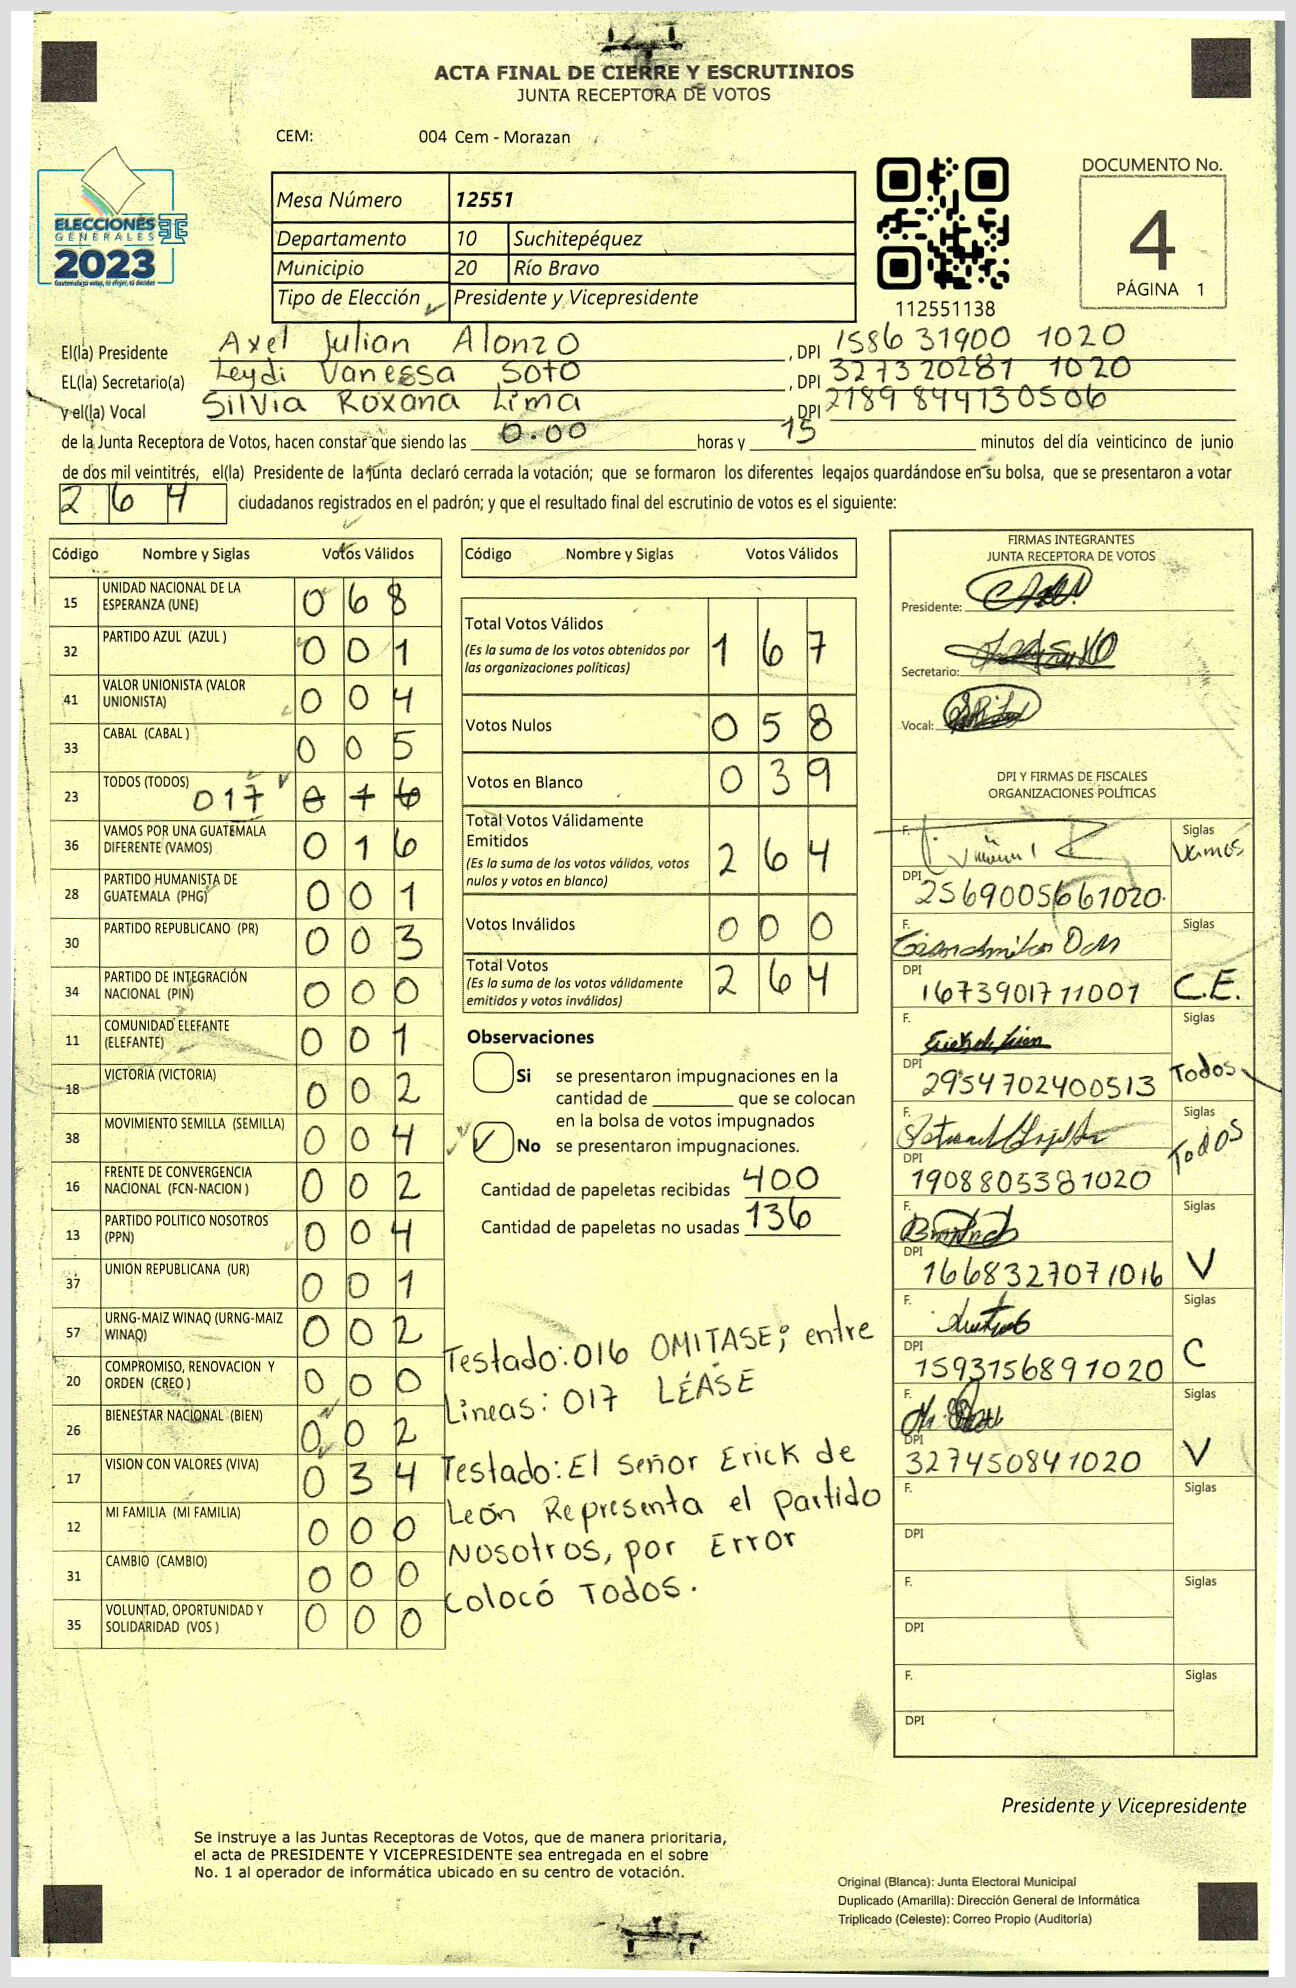 ACTA FINAL DE CIERRE Y ESCRUTINIOS
JUNTA RECEPTORA DE VOTOS
CEM: 004 Cem - Morazan
ELECCIONES
GENERALES
2023
Guatemala tu votas, tú eliges, tú decides
Mesa Número 12551
Departamento 10 Suchitepéquez
Municipio 20 Río Bravo
Tipo de Elección Presidente y Vicepresidente
112551138
DOCUMENTO No.
4
PÁGINA 1
El(la) Presidente Axel Julian Alonzo , DPI 1586 31900 1020
EL(la) Secretario(a) Leydi Vanessa Soto , DPI 3273 20281 1020
y el(la) Vocal Silvia Roxana Lima , DPI 2189 84413 0506
de la Junta Receptora de Votos, hacen constar que siendo las 0.00 horas y 15 minutos del día veinticinco de junio
de dos mil veintitrés, el(la) Presidente de la junta declaró cerrada la votación; que se formaron los diferentes legajos guardándose en su bolsa, que se presentaron a votar
2 6 4 ciudadanos registrados en el padrón; y que el resultado final del escrutinio de votos es el siguiente:
Código Nombre y Siglas Votos Válidos
15 UNIDAD NACIONAL DE LA ESPERANZA (UNE) 0 6 8
32 PARTIDO AZUL (AZUL ) 0 0 1
41 VALOR UNIONISTA (VALOR UNIONISTA) 0 0 4
33 CABAL (CABAL ) 0 0 5
23 TODOS (TODOS) 017 0 1 6
36 VAMOS POR UNA GUATEMALA DIFERENTE (VAMOS) 0 1 6
28 PARTIDO HUMANISTA DE GUATEMALA (PHG) 0 0 1
30 PARTIDO REPUBLICANO (PR) 0 0 3
34 PARTIDO DE INTEGRACIÓN NACIONAL (PIN) 0 0 0
11 COMUNIDAD ELEFANTE (ELEFANTE) 0 0 1
18 VICTORIA (VICTORIA) 0 0 2
38 MOVIMIENTO SEMILLA (SEMILLA) 0 0 4
16 FRENTE DE CONVERGENCIA NACIONAL (FCN-NACION ) 0 0 2
13 PARTIDO POLITICO NOSOTROS (PPN) 0 0 4
37 UNION REPUBLICANA (UR) 0 0 1
57 URNG-MAIZ WINAQ (URNG-MAIZ WINAQ) 0 0 2
20 COMPROMISO, RENOVACION Y ORDEN (CREO ) 0 0 0
26 BIENESTAR NACIONAL (BIEN) 0 0 2
17 VISION CON VALORES (VIVA) 0 3 4
12 MI FAMILIA (MI FAMILIA) 0 0 0
31 CAMBIO (CAMBIO) 0 0 0
35 VOLUNTAD, OPORTUNIDAD Y SOLIDARIDAD (VOS ) 0 0 0
Código Nombre y Siglas Votos Válidos
Total Votos Válidos 1 6 7
(Es la suma de los votos obtenidos por
las organizaciones políticas)
Votos Nulos 0 5 8
Votos en Blanco 0 3 9
Total Votos Válidamente
Emitidos 2 6 4
(Es la suma de los votos válidos, votos
nulos y votos en blanco)
Votos Inválidos 0 0 0
Total Votos 2 6 4
(Es la suma de los votos válidamente
emitidos y votos inválidos)
Observaciones
Si se presentaron impugnaciones en la
cantidad de ________ que se colocan
en la bolsa de votos impugnados
No se presentaron impugnaciones.
Cantidad de papeletas recibidas 400
Cantidad de papeletas no usadas 136
Testado: 016 OMITASE; entre
Lineas: 017 LÉASE
Testado: El señor Erick de
León Representa el partido
Nosotros, por Error
colocó Todos.
FIRMAS INTEGRANTES
JUNTA RECEPTORA DE VOTOS
Presidente:
Secretario:
Vocal:
DPI Y FIRMAS DE FISCALES
ORGANIZACIONES POLÍTICAS
F. Siglas Vamos
DPI 2569005661020
F. Siglas C.E.
DPI 1673901711001
F. Siglas Todos
DPI 2954702400513
F. Siglas Todos
DPI 1908805381020
F. Siglas V
DPI 1668327071016
F. Siglas C
DPI 1593156891020
F. Siglas V
DPI 327450841020
F. Siglas
DPI
F. Siglas
DPI
F. Siglas
DPI
Presidente y Vicepresidente
Se instruye a las Juntas Receptoras de Votos, que de manera prioritaria,
el acta de PRESIDENTE Y VICEPRESIDENTE sea entregada en el sobre
No. 1 al operador de informática ubicado en su centro de votación.
Original (Blanca): Junta Electoral Municipal
Duplicado (Amarilla): Dirección General de Informática
Triplicado (Celeste): Correo Propio (Auditoría)